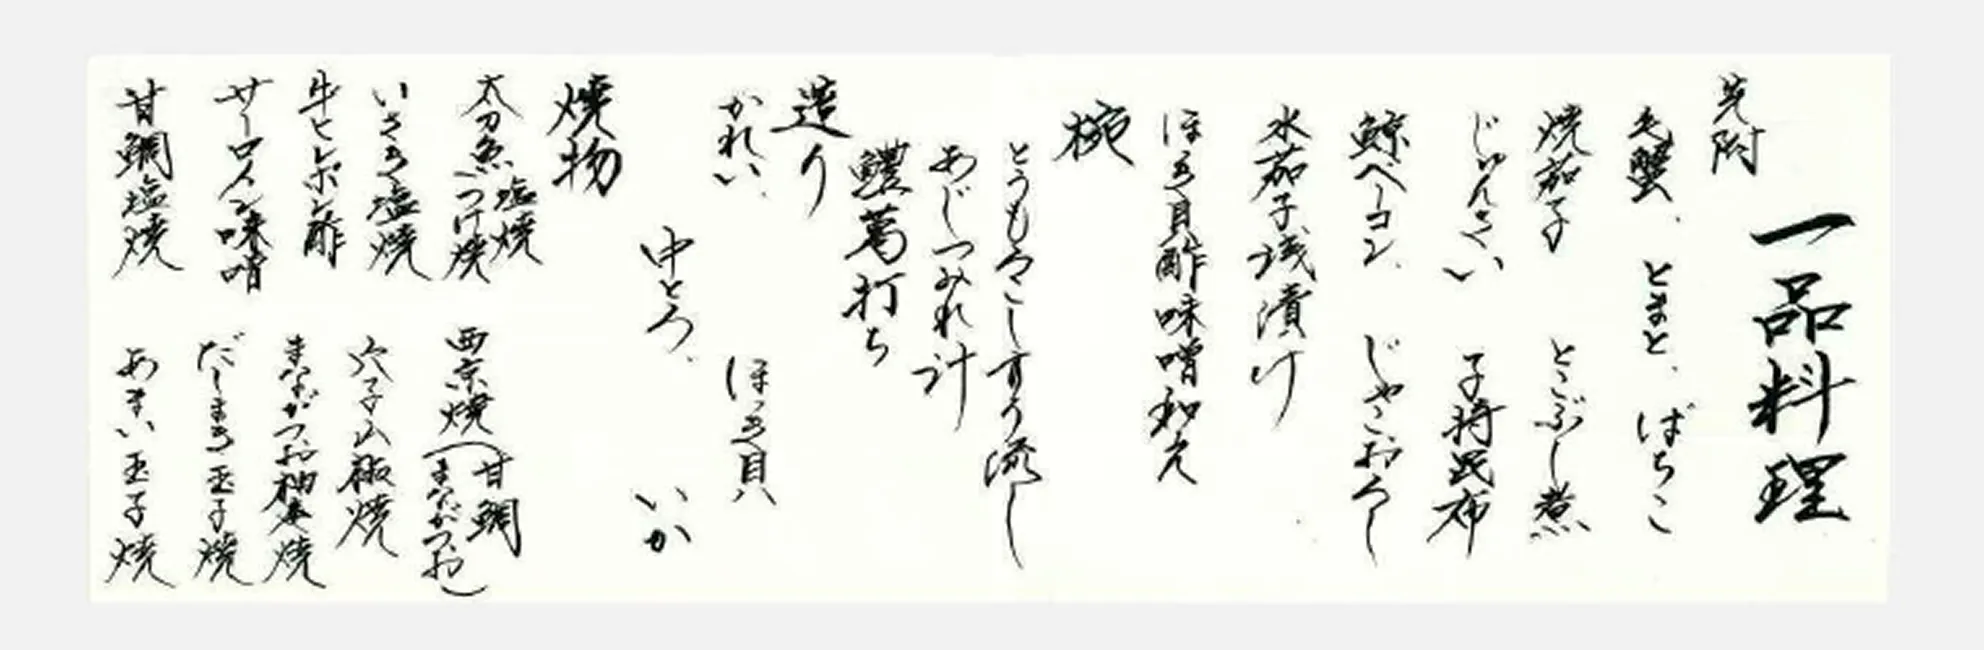 一品料理
先附
毛蟹、とまと、ばちこ
焼茄子 とこぶし煮
じゅんさい 子持昆布
鯨ベーコン、じゃこおろし
水茄子浅漬け
ほっき貝酢味噌和え
椀
とうもろこしすり流し
あじつみれ汁
鱧葛打ち
造り
かれい、ほっき貝
中とろ、いか
焼物
太刀魚 塩焼 つけ焼
西京焼(甘鯛 まながつお)
いさき塩焼 穴子山椒焼
牛ヒレポン酢 まながつお柚庵焼
サーロイン味噌 だしまき玉子焼
甘鯛塩焼 あまい玉子焼